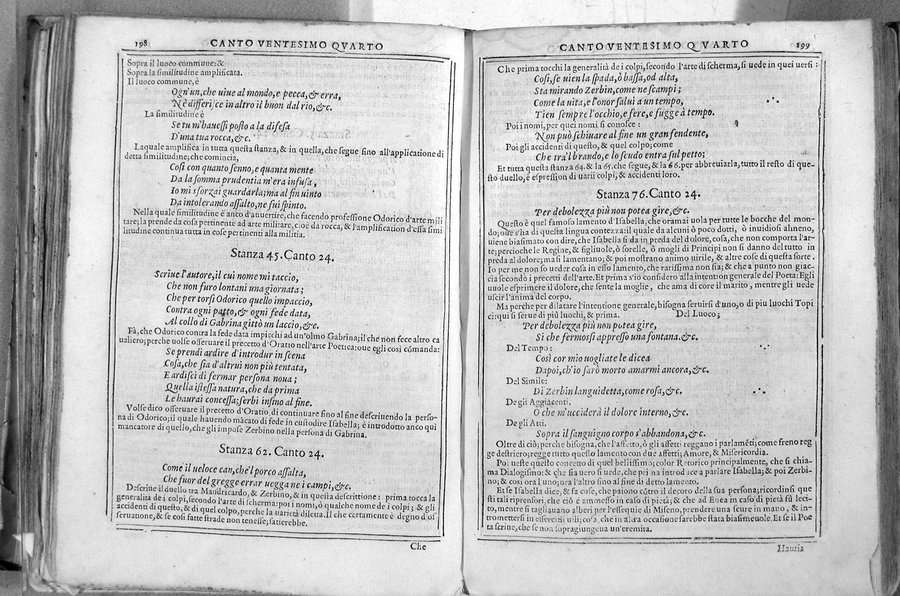 198
CANTO VENTESIMO QVARTO
Sopra il luoco commune; &
Sopra la similitudine amplificata.
Il luoco commune, è
Ogn'un, che uiue al mondo, e pecca, & erra,
Nè differisce in altro il buon dal rio, &c.
La similitudine è
Se tu m'hauessi posto a la difesa
D'una tua rocca, &c.
Laquale amplifica in tutta questa stanza, & in quella, che segue sino all'applicatione di
detta similitudine; che comincia,
Così con quanto senno, e quanta mente
Da la somma prudentia m'era infusa,
Io mi sforzai guardarla; ma al fin uinto
Da intolerando assalto, ne fui spinto.
Nella quale similitudine è anco d'auuertire, che facendo professione Odorico d'arte mili
tare; la prende da cosa pertinente ad arte militare, cioè da rocca, & l'amplification d'essa simi
litudine continua tutta in cose pertinenti alla militia.
Stanza 45. Canto 24.
Scriue l'autore, il cui nome mi taccio,
Che non furo lontani una giornata;
Che per torsi Odorico quello impaccio,
Contra ogni patto, & ogni fede data,
Al collo di Gabrina gittò un laccio, &c.
Fà, che Odorico contra la fede data impicchi ad un'olmo Gabrina; il che non fece altro ca
ualiero; perche uolse osseruare il precetto d'Oratio nell'arte Poetica: oue egli così cómanda:
Se prendi ardire d'introdur in scena
Cosa, che sia d'altrui non più tentata,
E ardisci di fermar persona noua;
Quella istessa natura, che da prima
Le haurai concessa; serbi infino al fine.
Volse dico osseruare il precetto d'Oratio, di continuare sino al fine descriuendo la perso-
na di Odorico; il quale hauendo mácato di fede in custodire Isabella; è introdotto anco qui
mancatore di quello, che gli impose Zerbino nella persona di Gabrina.
Stanza 62. Canto 24.
Come il ueloce can, che'l porco assalta,
Che fuor del gregge errar uegga ne i campi, &c.
Descriue il duello tra Mandricardo, & Zerbino, & in questa descrittione: prima tocca la
generalità de i colpi, secondo l'arte di scherma: poi i nomi, ò qualche nome de i colpi; & gli
accidenti di questo, & di quel colpo, perche la uarietà diletta. Il che certamente è degno d'os
seruatione, & se così fatte strade non tenesse; satierebbe.
Che
CANTO VENTESIMO QVARTO
199
Che prima tocchi la generalità de i colpi, secondo l'arte di scherma, si uede in quei uersi:
Così, se uien la spada, ò bassa, od alta,
Sta mirando Zerbin, come ne scampi;
Come la uita, e l'onor salui a un tempo,
Tien sempre l'occhio, e fere, e fugge à tempo.
Poi i nomi, per quei nomi si conosce:
Non può schiuare al fine un gran fendente,
Poi gli accidenti di questo, & quel colpo; come
Che tra'l brando, e lo scudo entra sul petto;
Et tutta questa stanza 64. & la 65. che segue, & la 66. per abbreuiarla, tutto il resto di que-
sto duello, è espression di uarii colpi, & accidenti loro.
Stanza 76. Canto 24.
Per debolezza più non potea gire, &c.
Questo è quel famoso lamento d'Isabella, che oramai uola per tutte le bocche del mon-
do; oue s'ha di questa lingua contezza: il quale da alcuni ò poco dotti, ò inuidiosi almeno,
uiene biasimato con dire, che Isabella si da in preda del dolore, cosa, che non comporta l'ar-
te; percioche le Regine, & figliuole, ò sorelle, ò mogli di Principi non si danno del tutto in
preda al dolore; ma si lamentano; & poi mostrano animo uirile, & altre cose di questa sorte.
Io per me non so ueder cosa in esso lamento, che rarissima non sia; & che a punto non giac-
cia secondo i precetti dell'arte. Et prima s'io considero alla intention generale del Poeta: Egli
uuole esprimere il dolore, che sente la moglie, che ama di core il marito, mentre gli uede
uscir l'anima del corpo.
Ma perche per dilatare l'intentione generale, bisogna seruirsi d'uno, o di piu luochi Topi
ci: qui si serue di più luochi, & prima. Del Luoco;
Per debolezza più non potea gire,
Sì che fermossi appresso una fontana. &c.
Del Tempo:
Così cor mio uogliate le dicea
Dapoi, ch'io sarò morto amarmi ancora, &c.
Del Simile:
Di Zerbin languidetta, come rosa, &c.
De gli Aggiacenti.
O che m'ucciderà il dolore interno, &c.
De gli Atti.
Sopra il sanguigno corpo s'abbandona, &c.
Oltre di ciò; perche bisogna, che l'affetto, ò gli affetti reggano i parlaméti; come freno reg
ge destriero; regge tutto questo lamento con due affetti; Amore, & Misericordia.
Poi ueste questo concetto di quel bellissimo; color Retorico principalmente, che si chia-
ma Dialogismo: & che sia uero si uede, che pri na introduce a parlare Isabella; & poi Zerbi-
no; & cosi ora l'uno, ora l'altro sino al fine di detto lamento.
Et se Isabella dice, & fa cose, che paiono cótro il decoro della sua persona; ricordinsi que
sti tali riprensori, che ciò è ammesso in caso di pietà; & che ad Enea in caso di pietà fù leci-
to, mentre si tagliauano alberi per l'essequie di Miseno, prendere una scure in mano, & in-
tromettersi in essercitii uili; cosa, che in altra occasione sarebbe stata biasmeuole. Et se il Poe
ta scriue, che se non sopragiungeua un'eremita.
Hauria